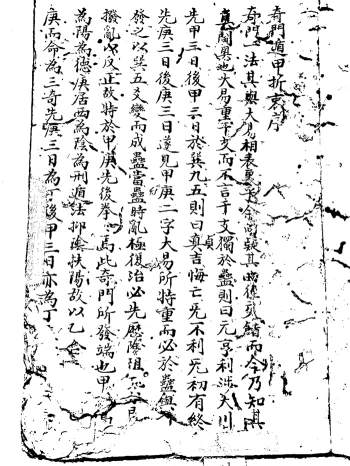 奇門遁甲折衷序
奇門一法其與大易相表裏予今閱頗其曲徑而今乃知其
閫奧也大易重干支而不言干支獨於蠱則曰元亨利涉大川
先甲三日後甲三日於巽九五則曰貞吉悔亡无不利无初有終
先庚三日後庚三日謹見甲庚二字大易所特重而必於蠱
發之以巽五爻變而成蠱當蠱時亂極復治必先歷險阻
撥亂反正故特於甲庚先後拳焉此奇門所發端也甲
為陽為德庚居西為陰為刑遁法抑陰扶陽故以乙
庚而命為三奇先庚三日為丁後甲三日亦為丁